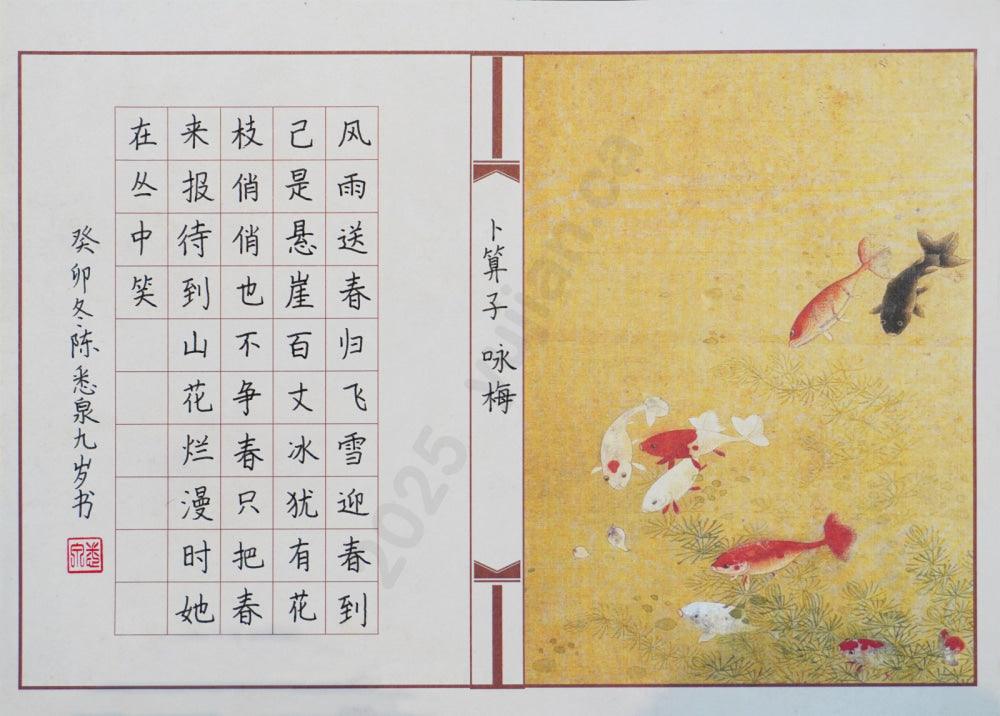 卜算子 咏梅
风雨送春归飞雪迎春到
己是悬崖百丈冰犹有花
枝俏俏也不争春只把春
来报待到山花烂漫时她
在丛中笑
癸卯冬陈悉泉九岁书
悉泉